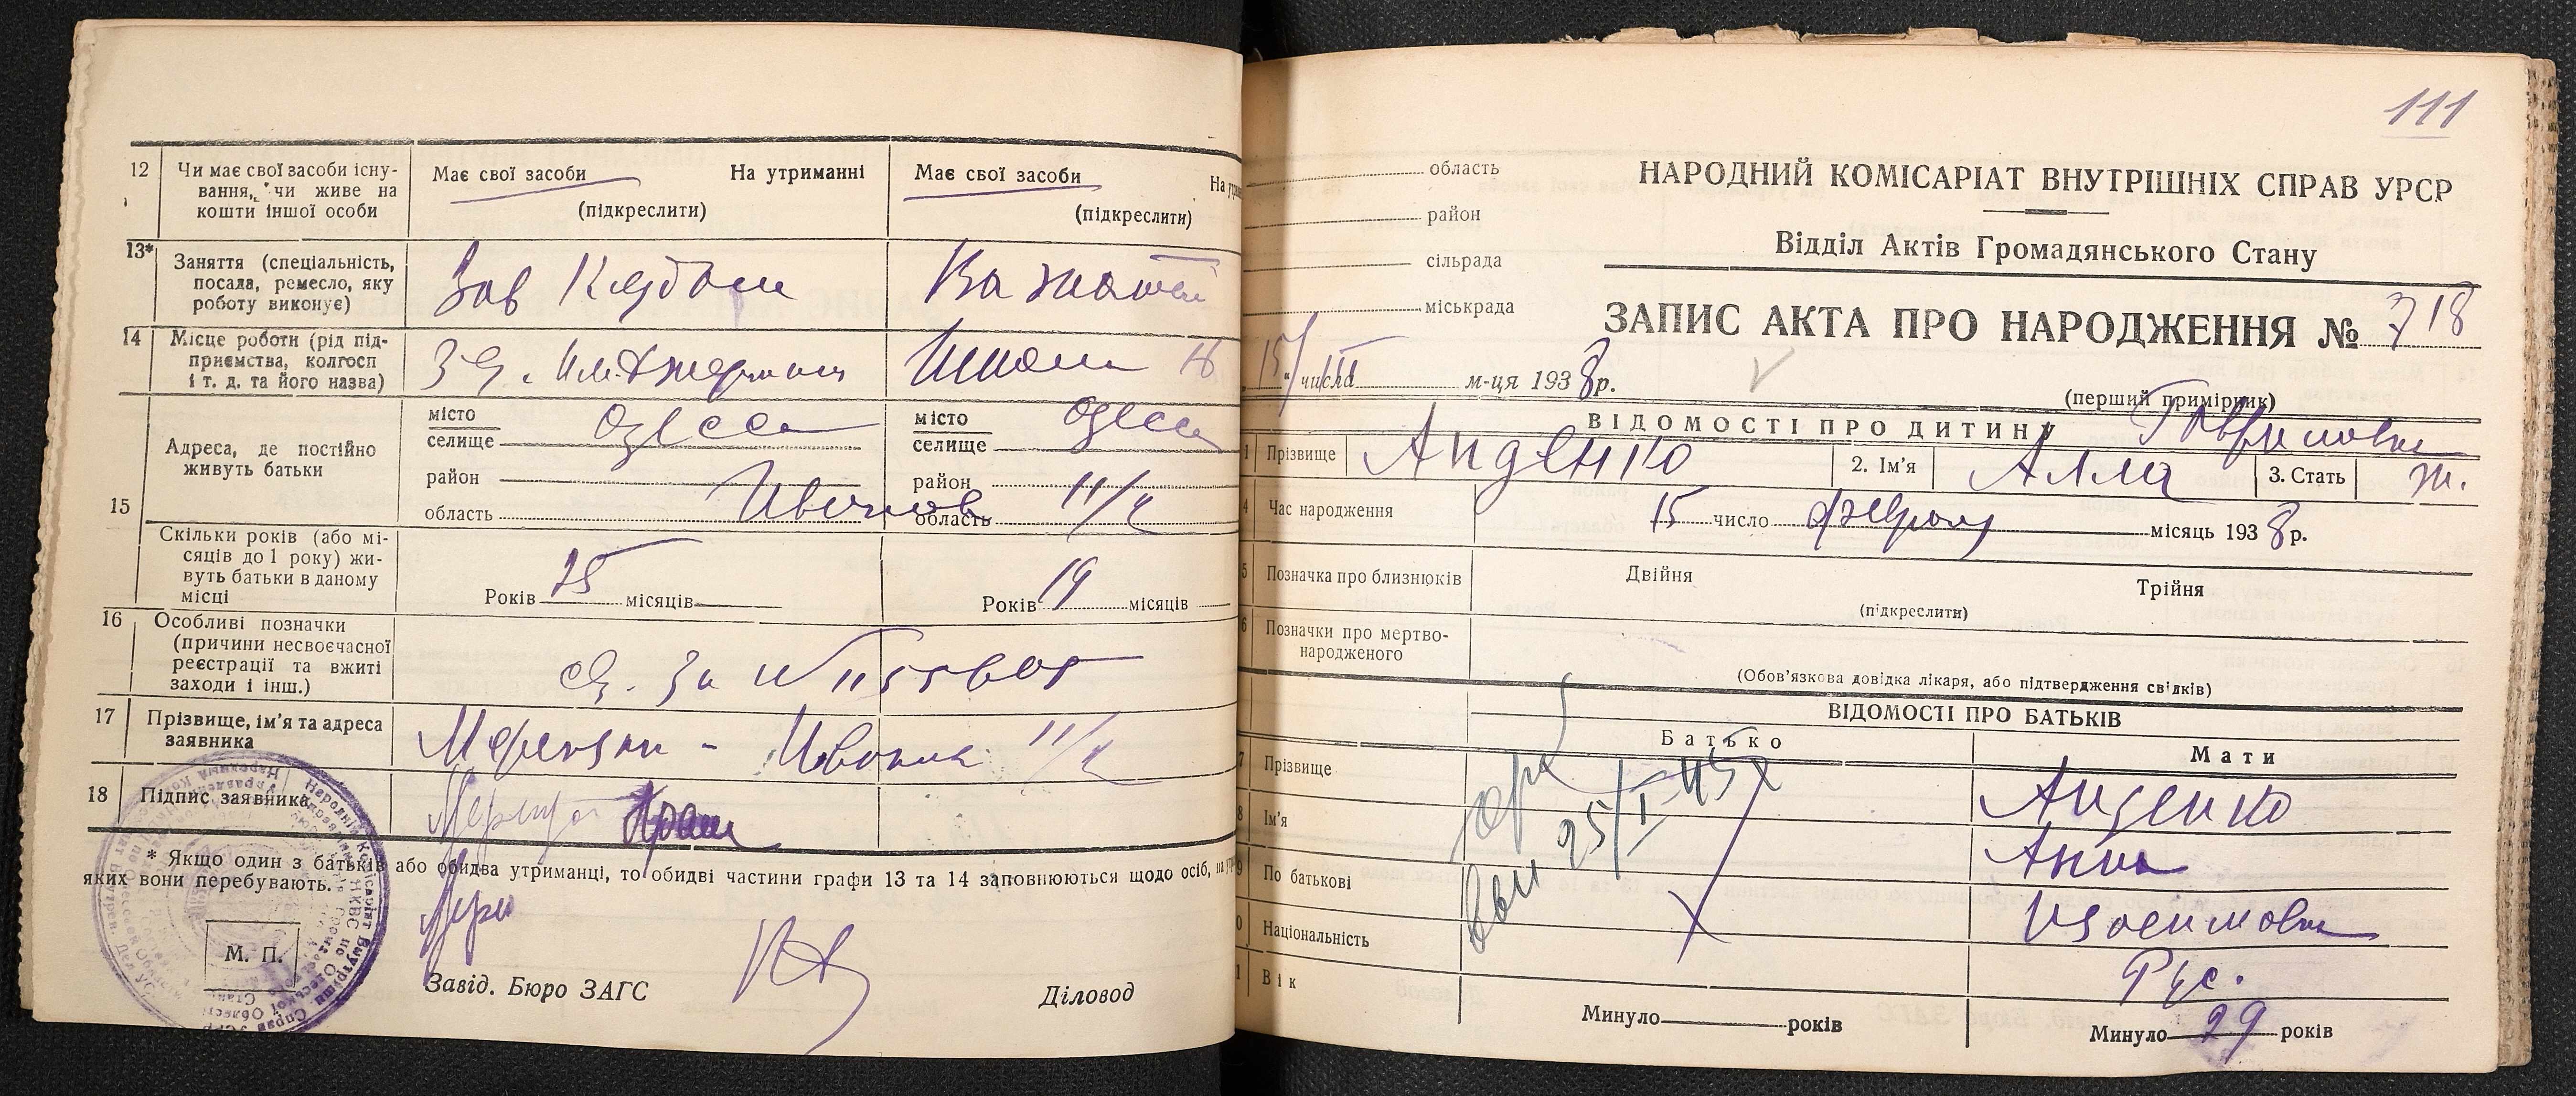 12
Чи має свої засоби існу-
вання, чи живе на
кошти іншої особи
Має свої засоби
На утриманні
(підкреслити)
Має свої засоби
На утри
(підкреслити)
13*
Заняття (спеціальність,
посада, ремесло, яку
роботу виконує)
Зав
14
Місце роботи (рід під-
приємства, колгосп
і т. д. та його назва)
15
Адреса, де постійно
живуть батьки
місто
селище
Одесса
район
область
місто
селище
Одесса
район
11/4
область
Скільки років (або мі-
сяців до 1 року) жи-
вуть батьки в даному
місці
Років 25 місяців
Років 19 місяців
16
Особливі позначки
(причини несвоєчасної
реєстрації та вжиті
заходи і інш.)
17
Прізвище, ім'я та адреса
заявника
11/4
18
Підпис заявника
* Якщо один з батьків або обидва утриманці, то обидві частини графи 13 та 14 заповнюються щодо осіб, на утри
яких вони перебувають.
М. П.
Завід. Бюро ЗАГС
Діловод
111
область
район
сільрада
міськрада
НАРОДНИЙ КОМІСАРІАТ ВНУТРІШНІХ СПРАВ УРСР
Відділ Актів Громадянського Стану
ЗАПИС АКТА ПРО НАРОДЖЕННЯ № 718
15/III числа м-ця 1938 р.
(перший примірник)
ВІДОМОСТІ ПРО ДИТИНУ
Гавриловна
1 Прізвище Анденко 2. Ім'я Алла 3. Стать ж.
4 Час народження 15 число февраля місяць 1938 р.
5 Позначка про близнюків Двійня Трійня
(підкреслити)
6 Позначки про мертво-
народженого
(Обов'язкова довідка лікаря, або підтвердження свідків)
ВІДОМОСТІ ПРО БАТЬКІВ
Батько
Мати
7 Прізвище
Анденко
8 Ім'я
Анна
25/I-45
9 По батькові
0 Національність
Рус.
1 Вік
Минуло років
Минуло 29 років